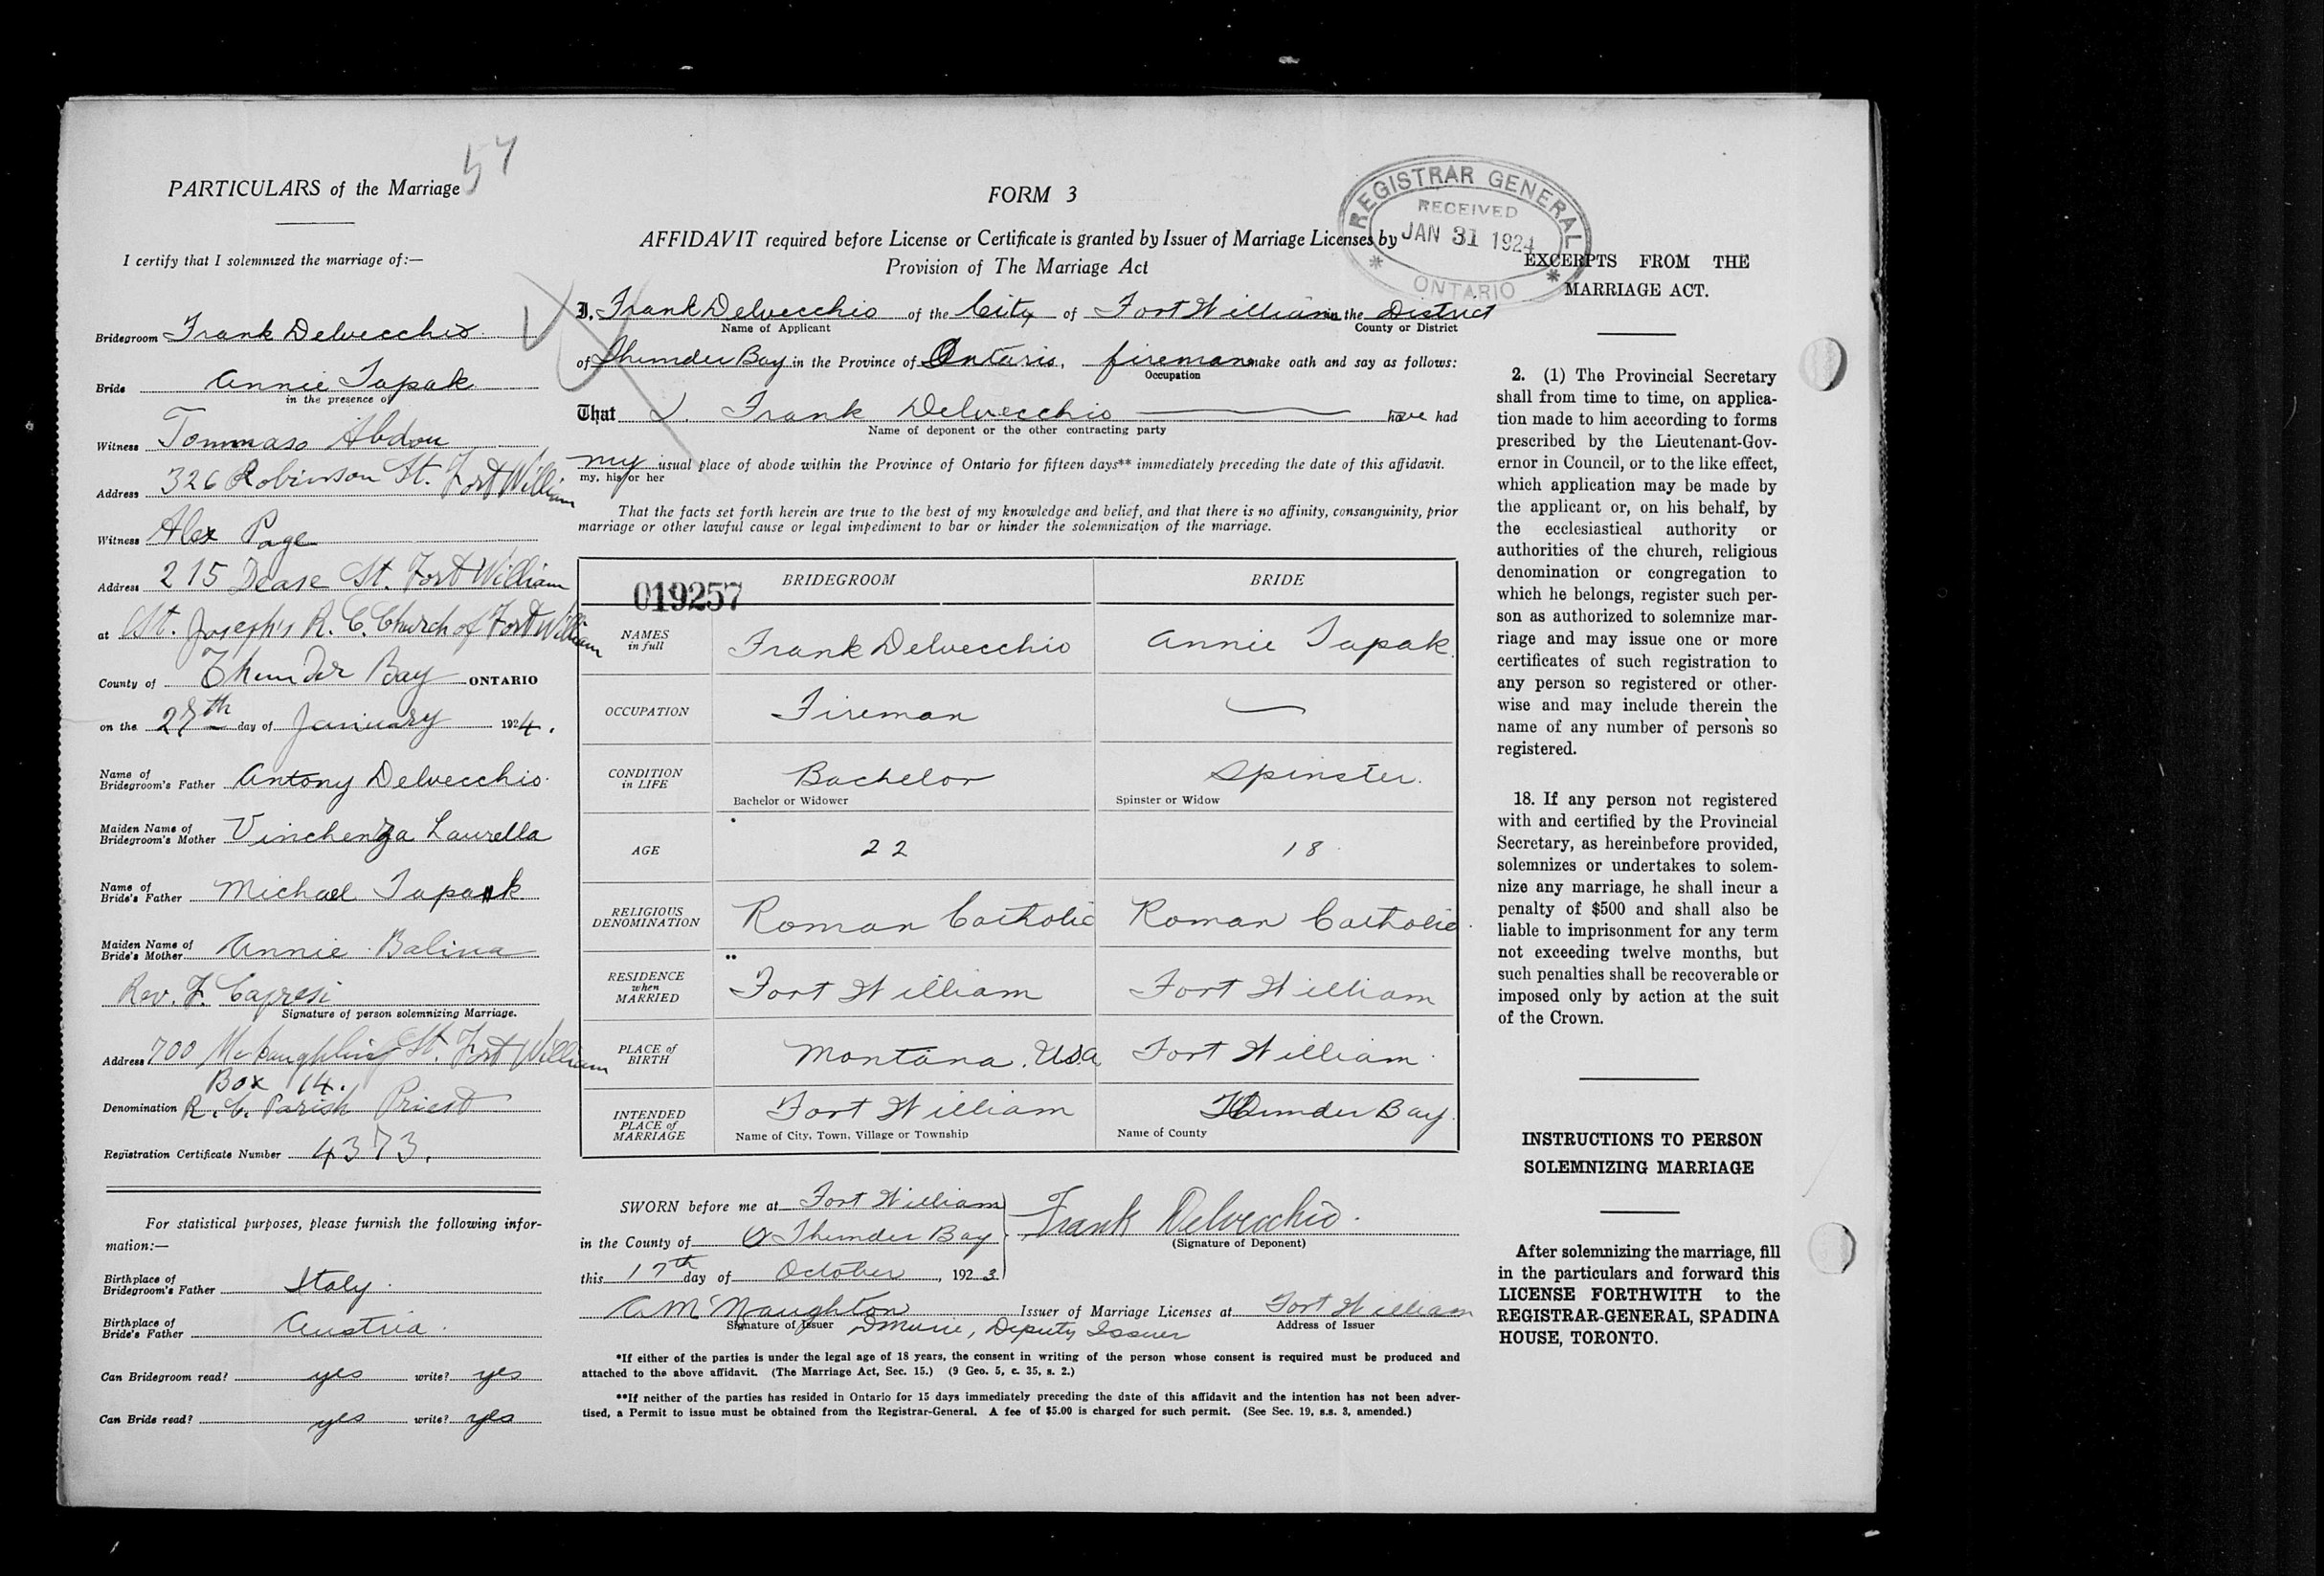 57
PARTICULARS of the Marriage
I certify that I solemnized the marriage of:—
Bridegroom Frank Delvecchio
Bride Annie Tapak
in the presence of
Witness Tommaso Abdou
Address 326 Robinson St. Fort William
Witness Alex Page
Address 215 Dease St. Fort William
at St. Joseph's R. C. Church of Fort William
County of Thunder Bay ONTARIO
on the 28th day of January 1924.
Name of Bridegroom's Father Antony Delvecchio.
Maiden Name of Bridegroom's Mother Vinchenza Laurella
Name of Bride's Father Michael Tapak
Maiden Name of Bride's Mother Annie Balina
Rev. F. Capresi
Signature of person solemnizing Marriage.
Address 700 McLaughlin St. Fort William
Box 14.
Denomination R. C. Parish Priest
Registration Certificate Number 4373.
For statistical purposes, please furnish the following infor-
mation:—
Birthplace of Bridegroom's Father Italy.
Birthplace of Bride's Father Austria.
Can Bridegroom read? yes write? yes
Can Bride read? yes write? yes
FORM 3
REGISTRAR GENERAL
RECEIVED
JAN 31 1924
ONTARIO
AFFIDAVIT required before License or Certificate is granted by Issuer of Marriage Licenses by
Provision of The Marriage Act
I, Frank Delvecchio of the City of Fort William in the District
Name of Applicant County or District
of Thunder Bay in the Province of Ontario, fireman make oath and say as follows:
Occupation
That I. Frank Delvecchio have had
Name of deponent or the other contracting party
my usual place of abode within the Province of Ontario for fifteen days** immediately preceding the date of this affidavit.
my, his or her
That the facts set forth herein are true to the best of my knowledge and belief, and that there is no affinity, consanguinity, prior
marriage or other lawful cause or legal impediment to bar or hinder the solemnization of the marriage.
019257 BRIDEGROOM BRIDE
NAMES in full Frank Delvecchio Annie Tapak.
OCCUPATION Fireman —
CONDITION in LIFE Bachelor Spinster.
Bachelor or Widower Spinster or Widow
AGE 22 18
RELIGIOUS DENOMINATION Roman Catholic Roman Catholic.
RESIDENCE when MARRIED Fort William Fort William
PLACE of BIRTH Montana. USA Fort William.
INTENDED PLACE of MARRIAGE Fort William Thunder Bay.
Name of City, Town, Village or Township Name of County
SWORN before me at Fort William
in the County of Thunder Bay
this 17th day of October, 1923
Frank Delvecchio.
(Signature of Deponent)
A McNaughton Issuer of Marriage Licenses at Fort William
Signature of Issuer Deputy Issuer Address of Issuer
*If either of the parties is under the legal age of 18 years, the consent in writing of the person whose consent is required must be produced and
attached to the above affidavit. (The Marriage Act, Sec. 15.) (9 Geo. 5, c. 35, s. 2.)
**If neither of the parties has resided in Ontario for 15 days immediately preceding the date of this affidavit and the intention has not been adver-
tised, a Permit to issue must be obtained from the Registrar-General. A fee of $5.00 is charged for such permit. (See Sec. 19, s.s. 3, amended.)
EXCERPTS FROM THE
MARRIAGE ACT.
2. (1) The Provincial Secretary
shall from time to time, on applica-
tion made to him according to forms
prescribed by the Lieutenant-Gov-
ernor in Council, or to the like effect,
which application may be made by
the applicant or, on his behalf, by
the ecclesiastical authority or
authorities of the church, religious
denomination or congregation to
which he belongs, register such per-
son as authorized to solemnize mar-
riage and may issue one or more
certificates of such registration to
any person so registered or other-
wise and may include therein the
name of any number of persons so
registered.
18. If any person not registered
with and certified by the Provincial
Secretary, as hereinbefore provided,
solemnizes or undertakes to solem-
nize any marriage, he shall incur a
penalty of $500 and shall also be
liable to imprisonment for any term
not exceeding twelve months, but
such penalties shall be recoverable or
imposed only by action at the suit
of the Crown.
INSTRUCTIONS TO PERSON
SOLEMNIZING MARRIAGE
After solemnizing the marriage, fill
in the particulars and forward this
LICENSE FORTHWITH to the
REGISTRAR-GENERAL, SPADINA
HOUSE, TORONTO.